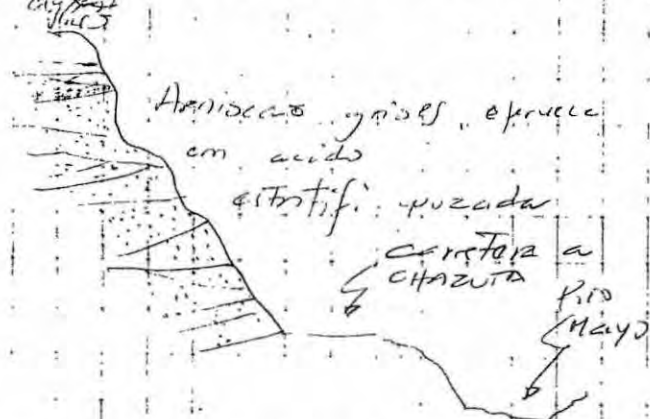 Areniscas grises, efervece
en acido
estratifi. cruzada
carretera a
CHAZUTA
Rio
Mayo